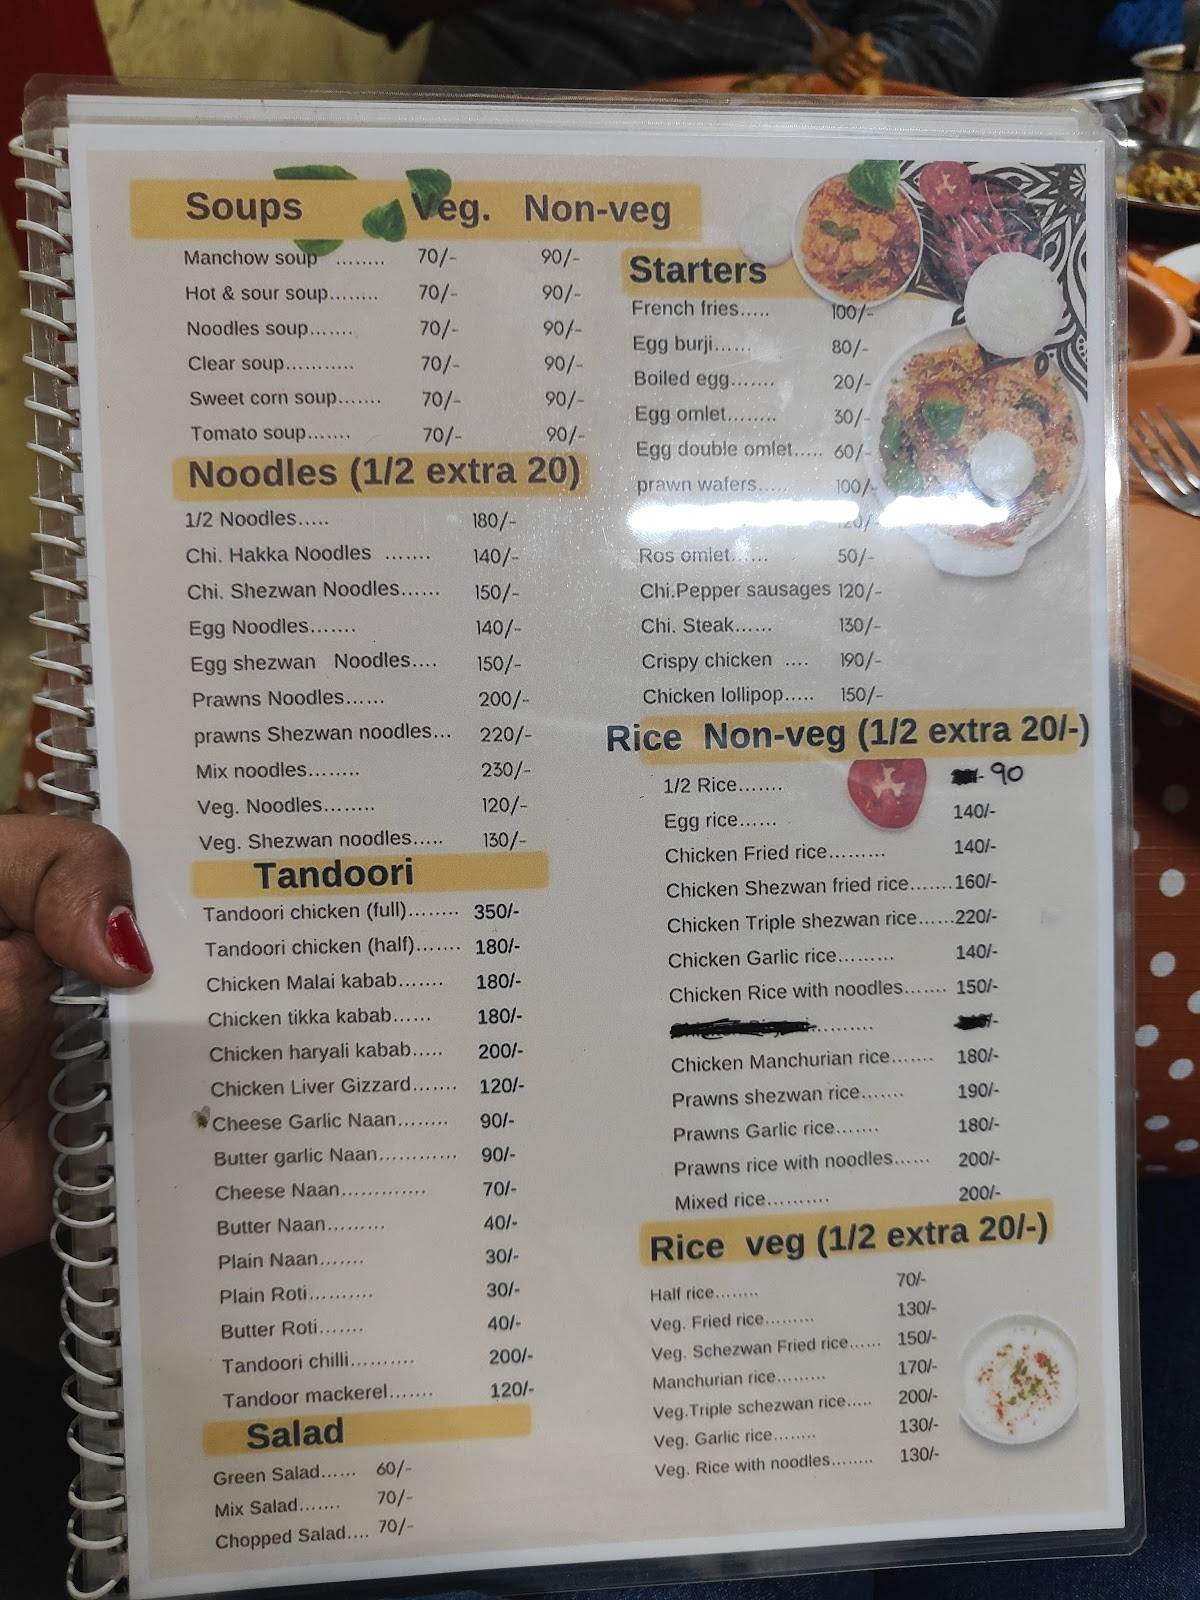 Soups Veg. Non-veg
Manchow soup ........ 70/- 90/-
Hot & sour soup........ 70/- 90/-
Noodles soup....... 70/- 90/-
Clear soup........... 70/- 90/-
Sweet corn soup....... 70/- 90/-
Tomato soup....... 70/- 90/-
Noodles (1/2 extra 20)
1/2 Noodles..... 180/-
Chi. Hakka Noodles ....... 140/-
Chi. Shezwan Noodles...... 150/-
Egg Noodles....... 140/-
Egg shezwan Noodles.... 150/-
Prawns Noodles...... 200/-
prawns Shezwan noodles... 220/-
Mix noodles........ 230/-
Veg. Noodles........ 120/-
Veg. Shezwan noodles..... 130/-
Tandoori
Tandoori chicken (full)........ 350/-
Tandoori chicken (half)....... 180/-
Chicken Malai kabab....... 180/-
Chicken tikka kabab...... 180/-
Chicken haryali kabab..... 200/-
Chicken Liver Gizzard....... 120/-
Cheese Garlic Naan........ 90/-
Butter garlic Naan............ 90/-
Cheese Naan............. 70/-
Butter Naan......... 40/-
Plain Naan....... 30/-
Plain Roti.......... 30/-
Butter Roti....... 40/-
Tandoori chilli.......... 200/-
Tandoor mackerel....... 120/-
Salad
Green Salad...... 60/-
Mix Salad....... 70/-
Chopped Salad.... 70/-
Starters
French fries..... 100/-
Egg burji...... 80/-
Boiled egg....... 20/-
Egg omlet........ 30/-
Egg double omlet..... 60/-
prawn wafers..... 100/-
120/-
Ros omlet...... 50/-
Chi.Pepper sausages 120/-
Chi. Steak...... 130/-
Crispy chicken .... 190/-
Chicken lollipop..... 150/-
Rice Non-veg (1/2 extra 20/-)
1/2 Rice....... 90
Egg rice...... 140/-
Chicken Fried rice......... 140/-
Chicken Shezwan fried rice.......160/-
Chicken Triple shezwan rice......220/-
Chicken Garlic rice......... 140/-
Chicken Rice with noodles....... 150/-
Chicken Manchurian rice....... 180/-
Prawns shezwan rice....... 190/-
Prawns Garlic rice....... 180/-
Prawns rice with noodles...... 200/-
Mixed rice.......... 200/-
Rice veg (1/2 extra 20/-)
Half rice........ 70/-
Veg. Fried rice......... 130/-
Veg. Schezwan Fried rice...... 150/-
Manchurian rice......... 170/-
Veg.Triple schezwan rice..... 200/-
Veg. Garlic rice........ 130/-
Veg. Rice with noodles........ 130/-